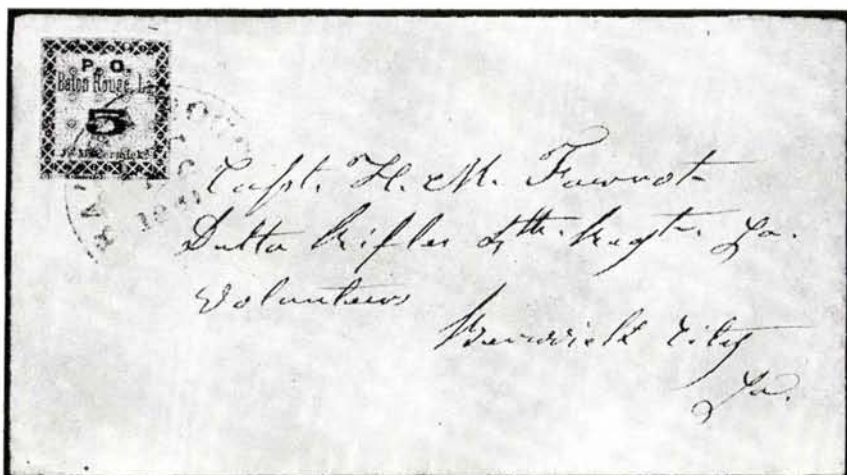 P. O.
Baton Rouge, La.
5
J. McCormick
Capt. H. M. Favrot
Delta Rifles 4th. Regt. La.
Volunteers
Berwick City
La.